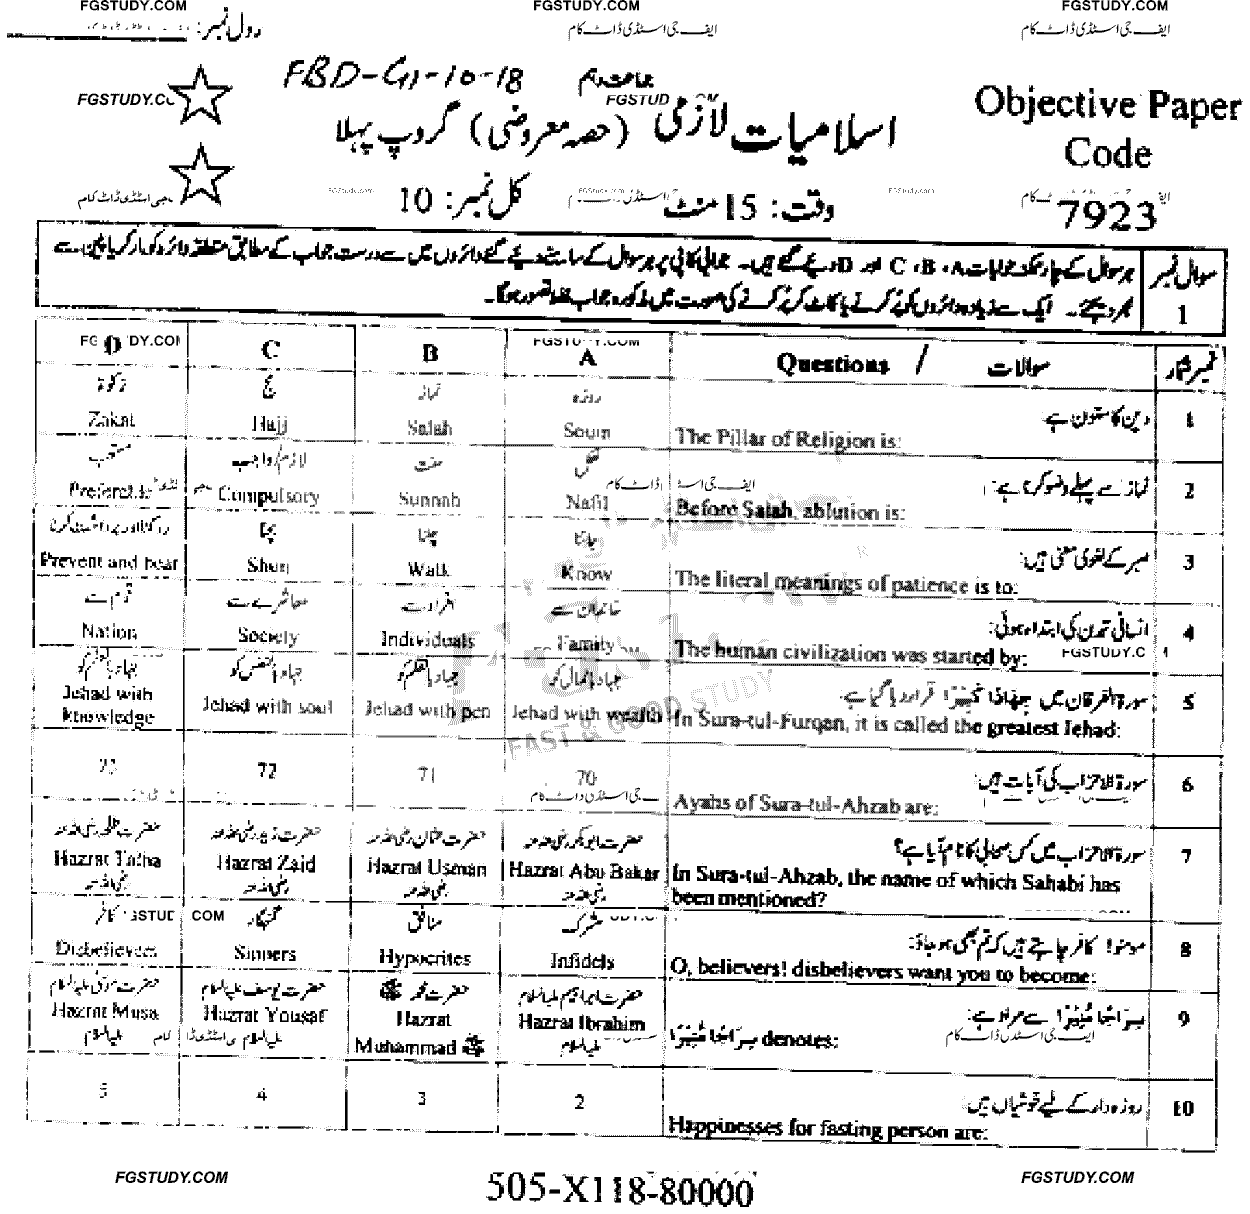 FGSTUDY.COM FGSTUDY.COM FGSTUDY.COM
رول نمبر: ایف جی اسٹڈی ڈاٹ کام ایف جی اسٹڈی ڈاٹ کام
FBD-G1-10-18 جماعت دہم
FGSTUDY.CO FGSTUD OM Objective Paper
اسلامیات لازمی (حصہ معروضی) گروپ پہلا
Code
وقت: 15 منٹ کل نمبر: 10
7923
سوال نمبر 1
ہر سوال کے چار ممکنہ جوابات A، B، C اور D دیئے گئے ہیں۔ جوابی کاپی پر ہر سوال کے سامنے دیئے گئے دائروں میں سے درست جواب کے مطابق متعلقہ دائرہ کو مارکر یا پین سے
بھر دیجئے۔ ایک سے زیادہ دائروں کو پُر کرنے یا کاٹ کر پُر کرنے کی صورت میں مذکورہ جواب غلط تصور ہوگا۔
D C B A Questions / سوالات نمبر شمار
زکوٰۃ حج نماز روزہ دین کا ستون ہے: 1
Zakat Hajj Salah Soum The Pillar of Religion is:
مستحب لازم/واجب سنت نفل نماز سے پہلے وضو کرنا ہے: 2
Preferable Compulsory Sunnah Nafil Before Salah, ablution is:
روکنا اور برداشت کرنا بچنا چلنا جاننا صبر کے لغوی معنی ہیں: 3
Prevent and bear Shun Walk Know The literal meanings of patience is to:
قوم سے معاشرے سے افراد سے خاندان سے انسانی تمدن کی ابتداء ہوئی: 4
Nation Society Individuals Family The human civilization was started by: FGSTUDY.C
جہاد بالعلم کو جہاد بالنفس کو جہاد بالقلم کو جہاد بالمال کو سورۃ الفرقان میں جِهَادًا كَبِيْرًا قرار دیا گیا ہے: 5
Jehad with knowledge Jehad with soul Jehad with pen Jehad with wealth In Sura-tul-Furqan, it is called the greatest Jehad:
FAST & GOOD STUDY
73 72 71 70 سورۃ الاحزاب کی آیات ہیں: 6
Ayahs of Sura-tul-Ahzab are:
حضرت طلحہ رضی اللہ عنہ حضرت زید رضی اللہ عنہ حضرت عثمان رضی اللہ عنہ حضرت ابوبکر رضی اللہ عنہ سورۃ الاحزاب میں کس صحابی کا نام آیا ہے؟ 7
Hazrat Talha رضی اللہ عنہ Hazrat Zaid رضی اللہ عنہ Hazrat Usman رضی اللہ عنہ Hazrat Abu Bakar رضی اللہ عنہ In Sura-tul-Ahzab, the name of which Sahabi has
been mentioned?
کافر گنہگار منافق مشرک مومنو! کافر چاہتے ہیں کہ تم بھی ہو جاؤ: 8
Disbelievers Sinners Hypocrites Infidels O, believers! disbelievers want you to become:
حضرت موسیٰ علیہ السلام حضرت یوسف علیہ السلام حضرت محمد ﷺ حضرت ابراہیم علیہ السلام سِرَاجًا مُّنِيْرًا سے مراد ہے: 9
Hazrat Musa علیہ السلام Hazrat Yousaf علیہ السلام Hazrat Muhammad ﷺ Hazrat Ibrahim علیہ السلام سِرَاجًا مُّنِيْرًا denotes:
5 4 3 2 روزہ دار کے لیے خوشیاں ہیں: 10
Happinesses for fasting person are:
FGSTUDY.COM 505-X118-80000 FGSTUDY.COM
ایف جی اسٹڈی ڈاٹ کام ایف جی اسٹڈی ڈاٹ کام